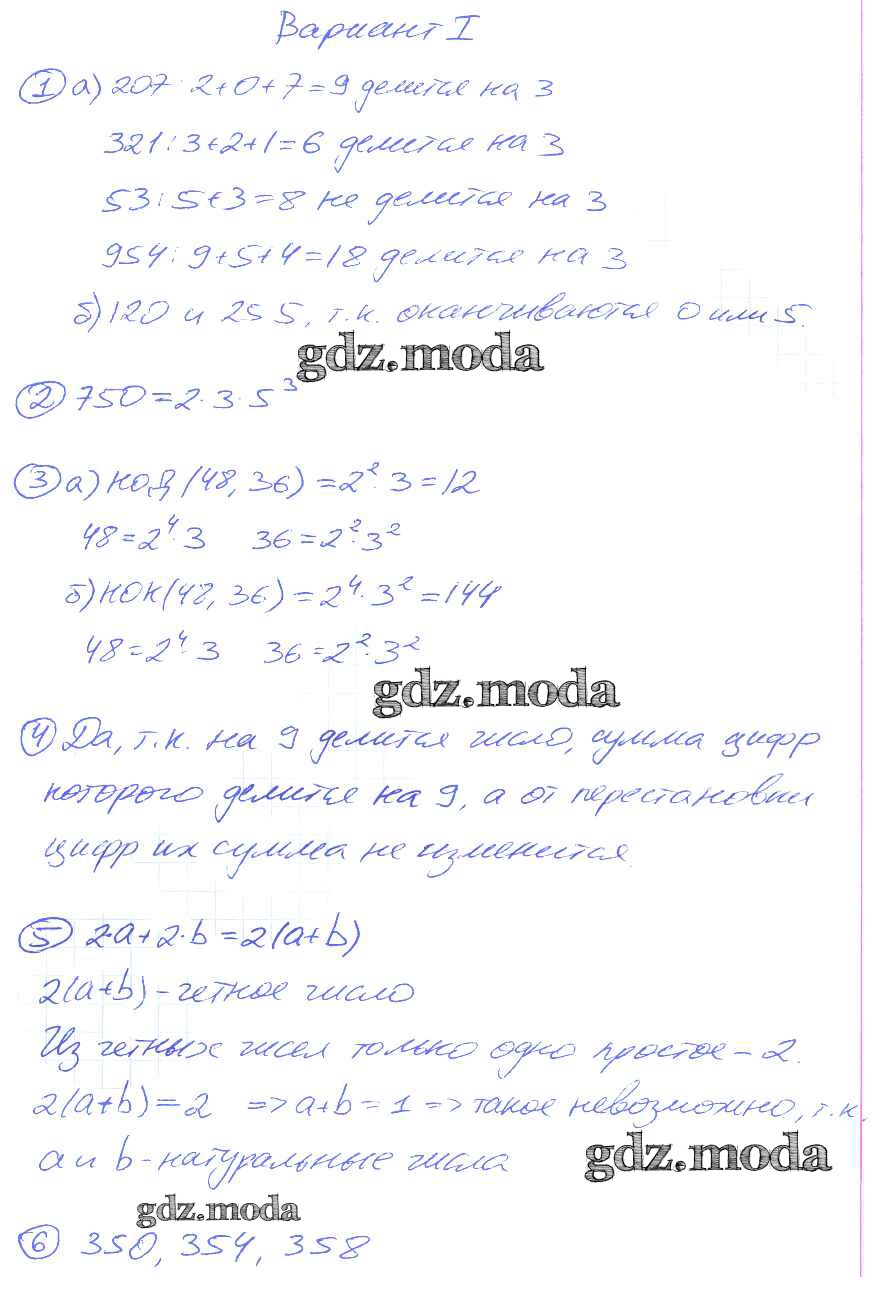 Вариант I
① а) 207 2+0+7=9 делится на 3
321: 3+2+1=6 делится на 3
53: 5+3=8 не делится на 3
954: 9+5+4=18 делится на 3
б) 120 и 255, т.к. оканчиваются 0 или 5.
gdz.moda
② 750=2·3·5³
③ а) НОД (48, 36) =2²·3=12
48=2⁴·3 36=2²·3²
б) НОК(48, 36) =2⁴·3²=144
48=2⁴·3 36=2²·3²
gdz.moda
④ Да, т.к. на 9 делится число, сумма цифр
которого делится на 9, а от перестановки
цифр их сумма не изменится
⑤ 2·a+2·b=2(a+b)
2(a+b) - четное число
Из четных чисел только одно простое - 2.
2(a+b)=2 =>a+b=1=>такое невозможно, т.к.
a и b - натуральные числа
gdz.moda
gdz.moda
⑥ 350, 354, 358